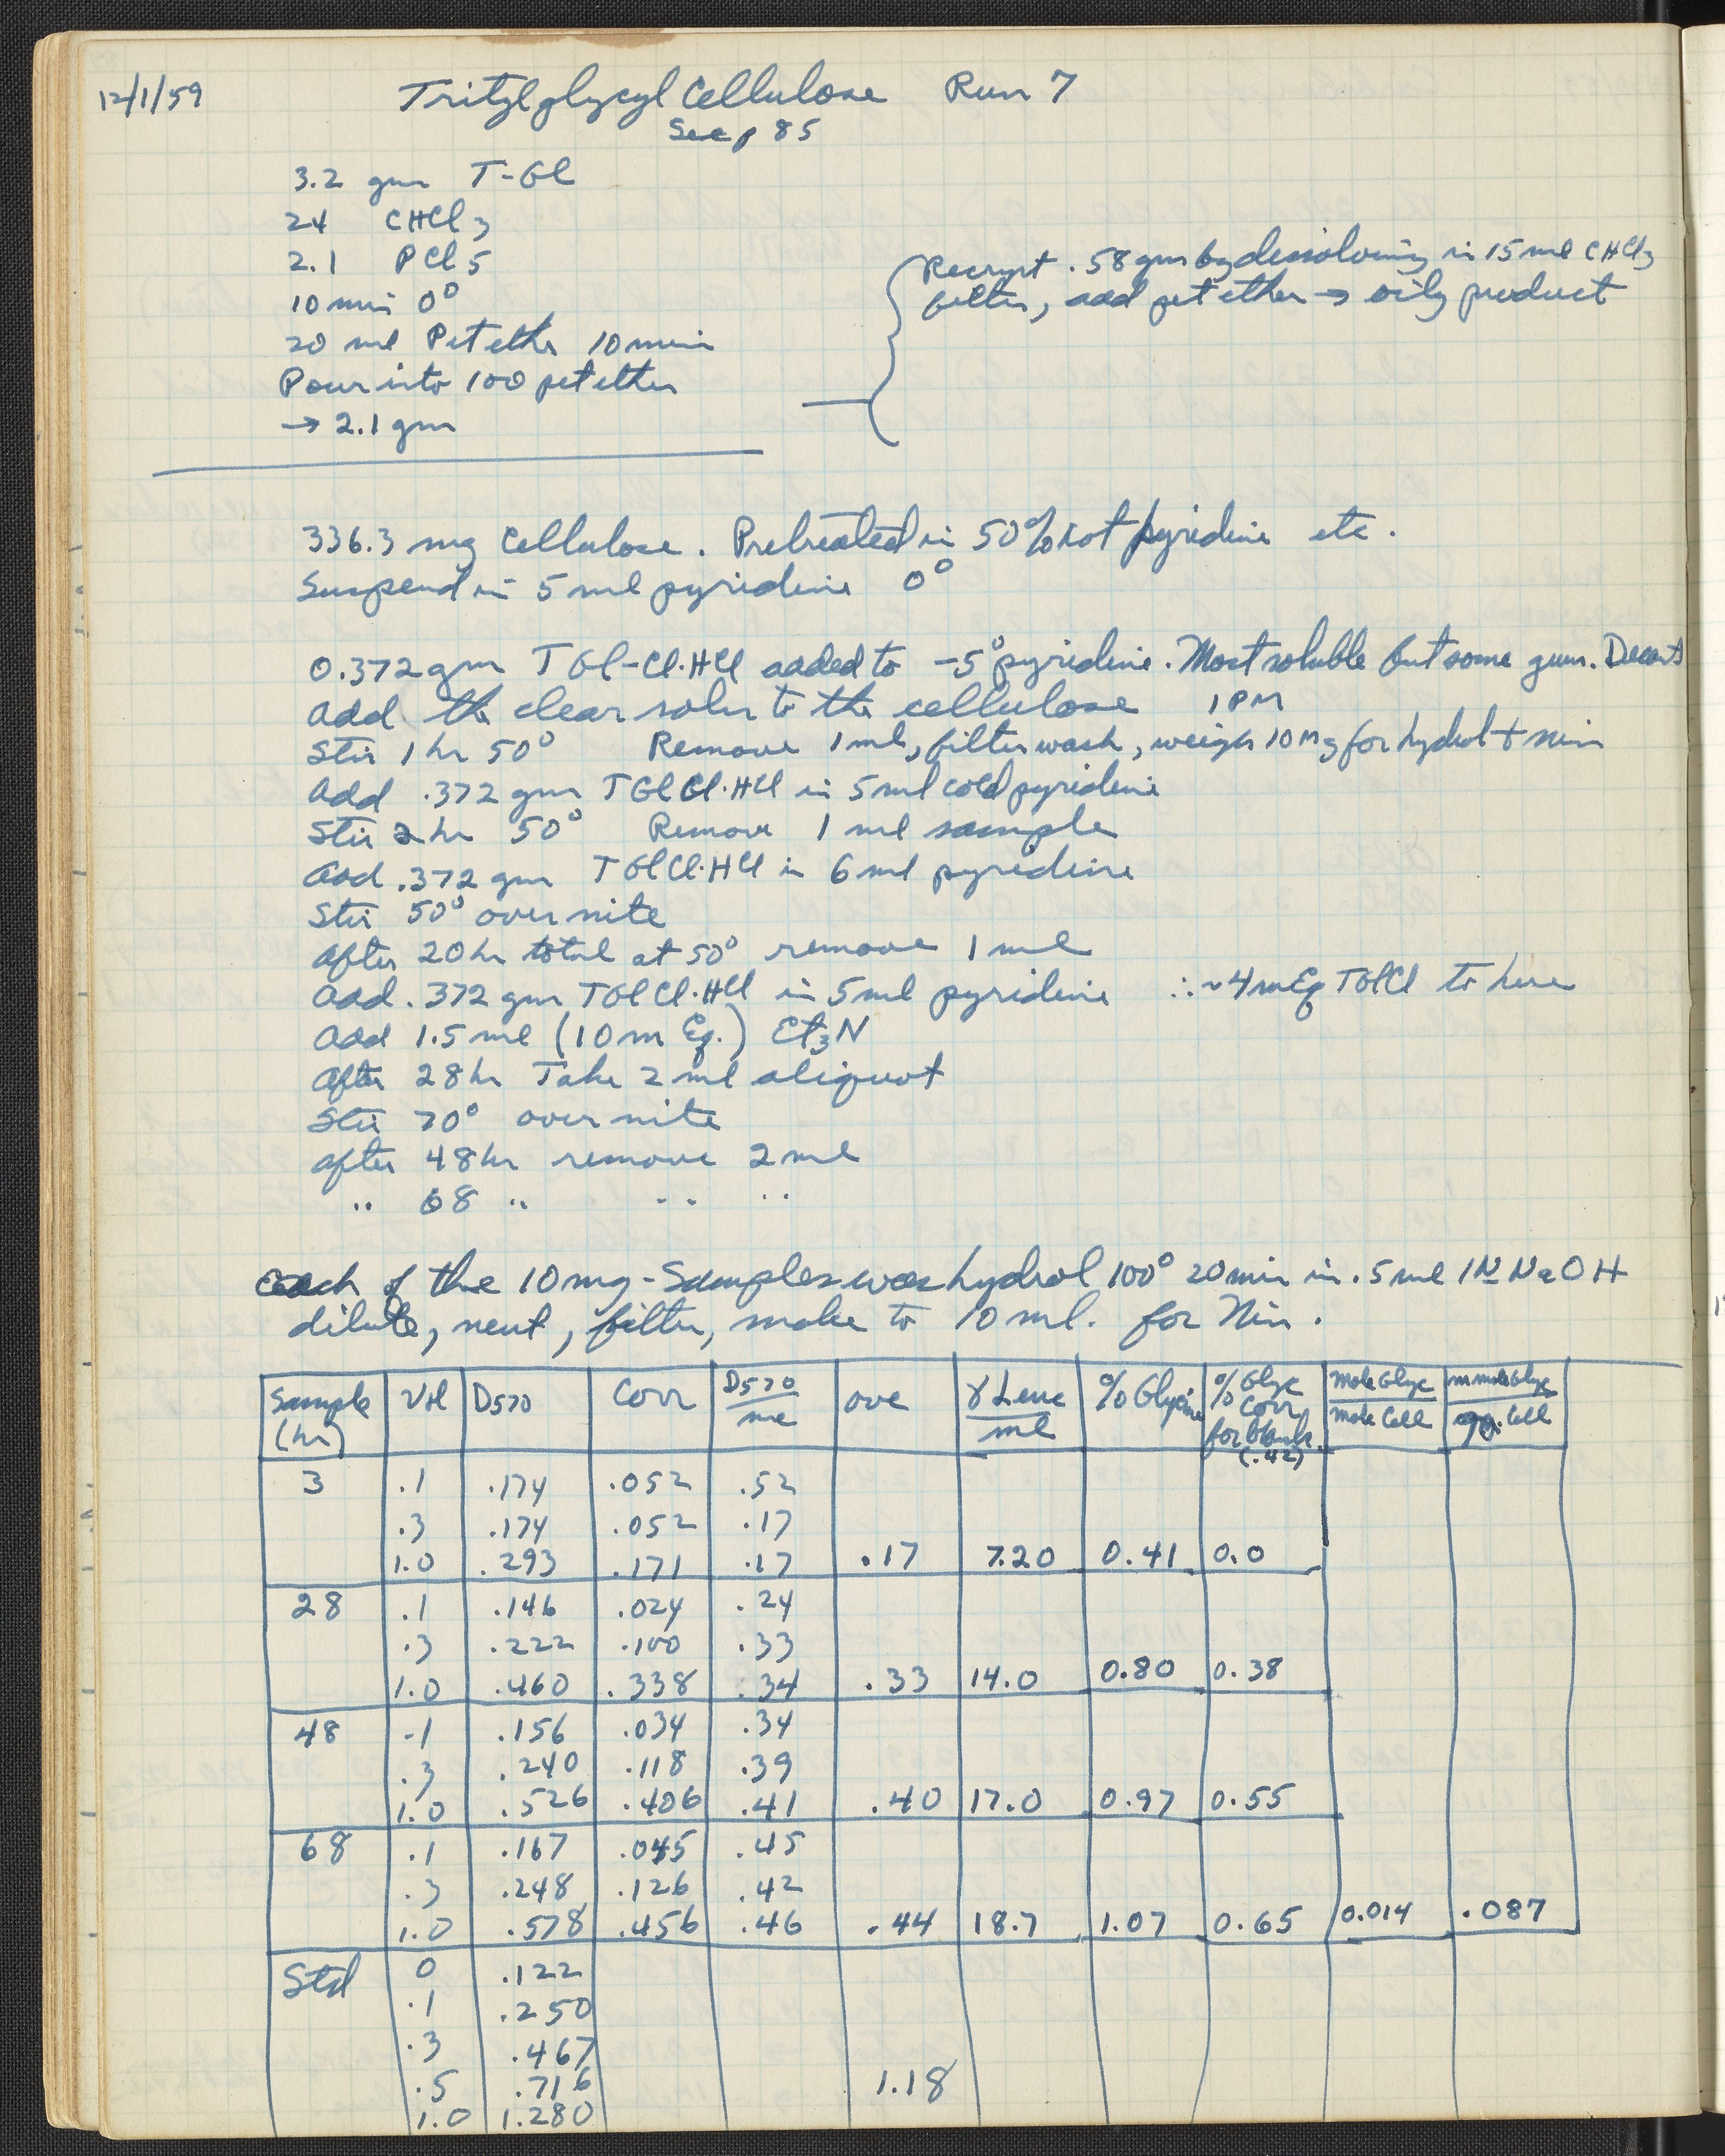 12/1/59 Tritylglycyl Cellulose Run 7
See p 85
3.2 gm T-Gl
24 CHCl3
2.1 PCl5
10 min 0°
20 ml Pet ether 10 min
Pour into 100 pet ether
→ 2.1 gm
Recryst .58 gm by dissolving in 15 ml CHCl3
filter, add pet ether → oily product
336.3 mg Cellulose. Pretreated in 50% hot pyridine etc.
Suspend in 5 ml pyridine 0°
0.372 gm T Gl-Cl·HCl added to -5° pyridine. Most soluble but some gum. Decant
Add the clear soln to the cellulose 1 PM
Stir 1 hr 50° Remove 1 ml, filter wash, weigh 10 mg for hydrol + nin
Add .372 gm TGlCl·HCl in 5 ml cold pyridine
Stir 2 hr 50° Remove 1 ml sample
Add .372 gm TGlCl·HCl in 6 ml pyridine
Stir 50° over nite
After 20 hr total at 50° remove 1 ml
Add .372 gm TGlCl·HCl in 5 ml pyridine ∴ ~4 mEq TGlCl to here
Add 1.5 ml (10 m Eq.) Et3N
After 28 hr Take 2 ml aliquot
Stir 70° over nite
after 48 hr remove 2 ml
" 68 " " "
Each of the 10 mg-Samples was hydrol 100° 20 min in .5 ml 1N NaOH
dilute, neut, filter, make to 10 ml. for Nin.
Sample (hr) Vol D570 Corr D570/ml ave γ Leuc/ml % Glycine % Glyc Corr for blank (.42) mole Glyc/mole Cell mmole Glyc/gm Cell
3 .1 .174 .052 .52
.3 .174 .052 .17
1.0 .293 .171 .17 .17 7.20 0.41 0.0
28 .1 .146 .024 .24
.3 .222 .100 .33
1.0 .460 .338 .34 .33 14.0 0.80 0.38
48 .1 .156 .034 .34
.3 .240 .118 .39
1.0 .526 .406 .41 .40 17.0 0.97 0.55
68 .1 .167 .045 .45
.3 .248 .126 .42
1.0 .578 .456 .46 .44 18.7 1.07 0.65 0.014 .087
Std 0 .122
.1 .250
.3 .467
.5 .716 1.18
1.0 1.280